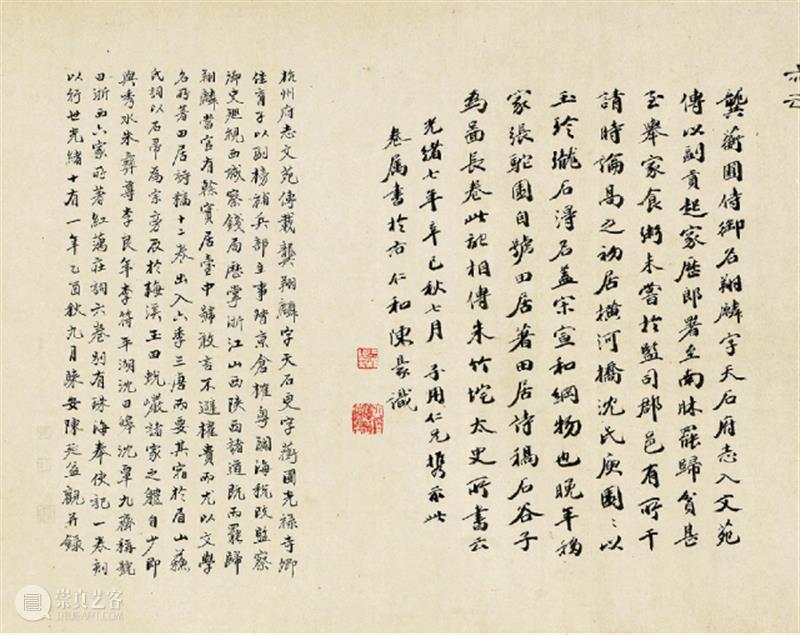 龔蘅圃侍御名翔麟字天石府志入文苑
傳以副貢起家歷郎署至南牀罷歸貧甚
至舉家食粥未嘗於監司郡邑有所干
請時論高之初居橫河橋沈氏庾園〻以
玉玲瓏石得名蓋宋宣和綱物也晚年移
家張駝園自號田居著田居詩稿石谷子
為畫長卷此記相傳朱竹垞太史所書云
光緒七年辛巳秋七月 子用仁兄攜示此
卷屬書於右仁和陳豪識
杭州府志文苑傳載龔翔麟字天石更字蘅圃光祿寺卿
佳育子以副榜補兵部主事隨京倉榷粵關海稅改監察
御史巡視西城察錢局歷掌浙江山西陝西諸道既而罷歸
翔麟當官有幹實居臺中務敢言不避權貴而尤以文學
名所著田居詩稿十二卷出入六季三唐而要其宿於眉山蘇
氏詞以石帚為宗旁及於梅溪玉田蛻巖諸家之體自少即
與秀水朱彝尊李良年李符平湖沈皞日沈岸登齊稱號
曰浙西六家所著紅藕莊詞六卷別有珠海奉使記一卷刻
以行世光緒十有一年乙酉秋九月 安陳 益觀并錄
崇真艺客